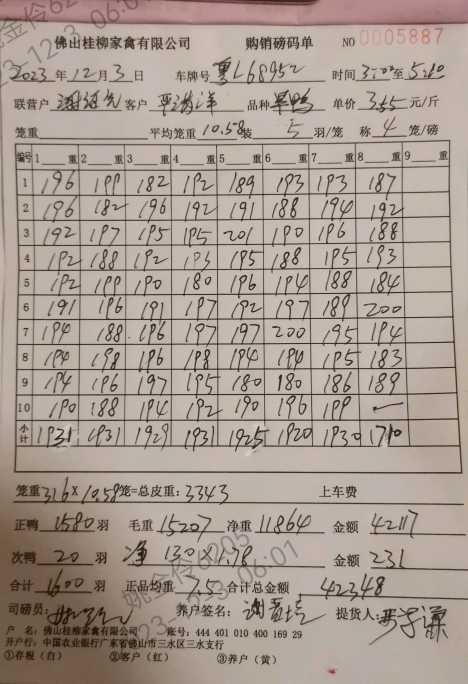 佛山桂柳家禽有限公司 购销磅码单 NO 0005887
2023年12月3日 车牌号 粤L68952 时间 3:00至5:10
联营户 客户 品种 单价 3.55 元/斤
笼重 平均笼重 10.58 装 5 羽/笼 称 4 笼/磅
编号 1 重 2 重 3 重 4 重 5 重 6 重 7 重 8 重 9 重
1 196 199 182 192 189 193 193 187
2 196 182 196 192 191 188 194 192
3 192 197 195 195 201 190 196 188
4 192 188 192 193 195 188 195 193
5 192 199 190 180 196 194 188 184
6 191 196 191 197 192 197 189 200
7 194 188 196 197 197 200 195 194
8 194 198 196 198 194 194 195 183
9 194 196 197 195 180 180 186 189
10 190 188 194 192 190 196 199 —
小计 1931 1931 1929 1931 1925 1920 1930 1710
笼重 316×10.58 笼=总皮重: 3343 上车费
正鸭 1580 羽 毛重 15207 净重 11864 金额 42117
次鸭 20 羽 净 130×1.78 金额 231
合计 1600 羽 正品均重 7.5 合计总金额 42348
司磅员: 养户签名: 提货人:
户 名: 佛山桂柳家禽有限公司 账号: 444 401 010 400 169 29
开户行: 中国农业银行广东省佛山市三水区三水支行
①存根(白) ②客户(红) ③养户(黄)